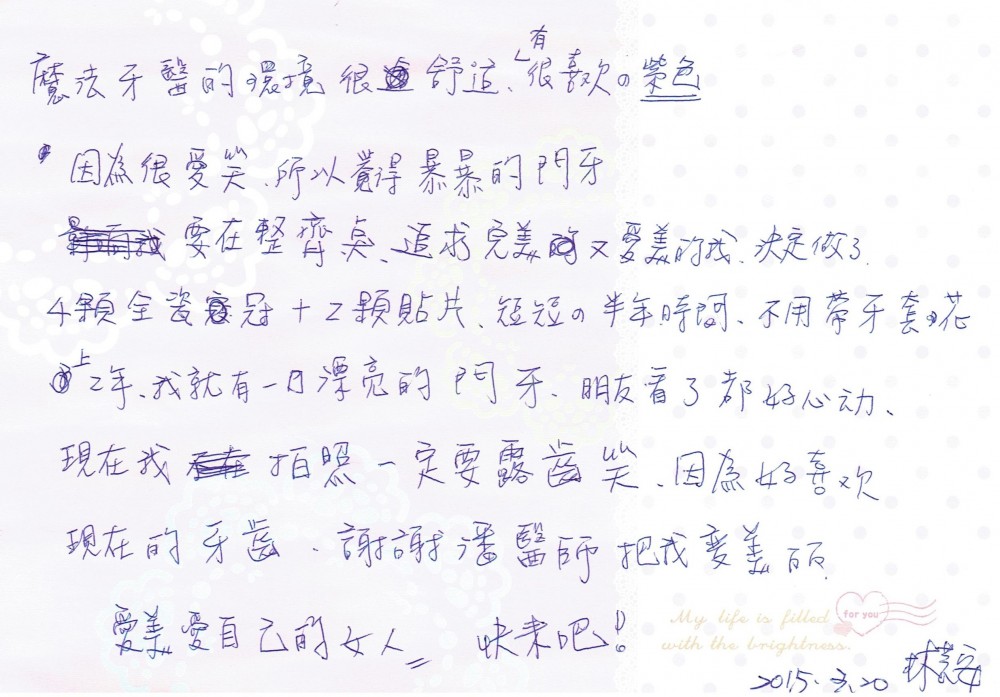 魔法牙醫的環境很舒適、有很喜歡の紫色
因為很愛笑、所以覺得暴暴的門牙
要在整齊桌、追求完美又愛美的我、決定做了
4顆全瓷冠+2顆貼片、短短の半年時間、不用帶牙套花
上2年、我就有一口漂亮的門牙、朋友看了都好心动、
現在我拍照一定要露齒笑、因為好喜欢
現在的牙齒、謝謝潘醫師把我變美丽
愛美愛自己的女人 快來吧!!
My life is filled
with the brightness.
for you
2015.3.20